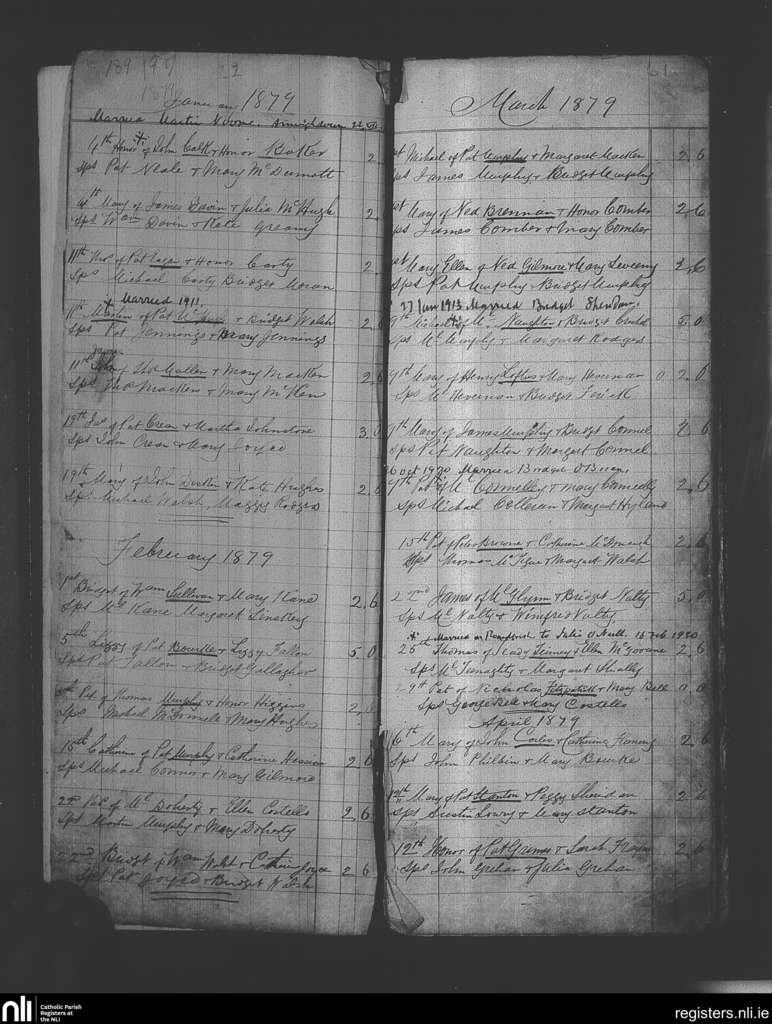 189
22
January 1879
Married Martin Noone.
4th Honor of John Calk & Honor Baker 2
Sps Pat Neale & Mary McDermott
4th Mary of James Davin & Julia McHugh 2
Sps Wam Davin & Kate Greamy
11th of Pat & Honor Carty 2
Sps Michael Carty Bridget Moran
Married 1911.
11th Martin of Pat & Bridget Walsh 2 6
Sps Pat Jennings & Mary Jennings
11th of Thos Mallen & Mary Macken 2 6
Sps Thos Macken & Mary McKen
19th Jas of Pat Crean & Martha Johnstone 3 0
Sps John Crean & Mary Joyce
19th Mary of John & Kate Hughes 2 6
Sps Michael Walsh Maggy Rodgers
February 1879
1st Bridget of Wam Sullivan & Mary Kane 2 6
Sps Ml Kane Margaret
5th Lizzy of Pat Bourke & Lizzy Fallon 5 0
Sps Pat Fallon & Bridget Gallagher
Pat of Thomas Murphy & Honor Higgins 2 6
Sps Michael & Mary Hughes
Catherine of Pat Murphy & Catherine 2 6
Sps Michael Connor & Mary Gilmore
22nd Pat of Ml Doherty & Ellen Costello 2 6
Sps Martin Murphy & Mary Doherty
22nd Bridget of Wam & Catherine Joyce 2 6
Sps Pat Joyce & Bridget Walsh
61
March 1879
Michael of Pat Murphy & Margaret Macken 2 6
Sps James Murphy & Bridget Murphy
Mary of Ned Brennan & Honor Comber 2 6
Sps James Comber & Mary Comber
Mary Ellen of Ned Gilmore & Mary Leveeny 2 6
Sps Pat Murphy & Bridget Murphy
27 Jan 1913 Married Bridget
9th Michael of Ml Naughton & Bridget 5 0
Sps Ml Murphy & Margaret Rodgers
9th Mary of Henry Loftus & Mary Heveran 2 0
Sps Ml Heveran & Bridget
9th Mary of James Murphy & Bridget Connel 6
Sps Pat Naughton & Margaret Connel
Oct 1920 Married Bridget O'Brien
9th Pat of Ml Connelly & Mary Connelly 2 6
Sps Michael Colleran & Margaret Hyland
15th Pat of Peter Browne & Catherine McDonough 2 6
Sps Thomas McTigue & Margaret Walsh
22nd James of Ml Glynn & Bridget Nalty 5 0
Sps Ml Nalty & Winifred Nalty
Married to Julia 1920
25th Thomas of Feeney & Ellen McGovane 2 6
Sps Ml & Margaret
29th Pat of Nicholas Fitzpatrick & Mary Bell 0 0
Sps George Bell & Mary Costello
April 1879
6th Mary of John & Catherine 2 6
Sps John Philbin & Mary Bourke
12th Mary of Pat Stanton & Peggy Sheridan 2 6
Sps Austin Lowry & Mary Stanton
12th Honor of Pat & Sarah 2 6
Sps John Grehan & Julia Grehan
nli
Catholic Parish
Registers at
the NLI
registers.nli.ie